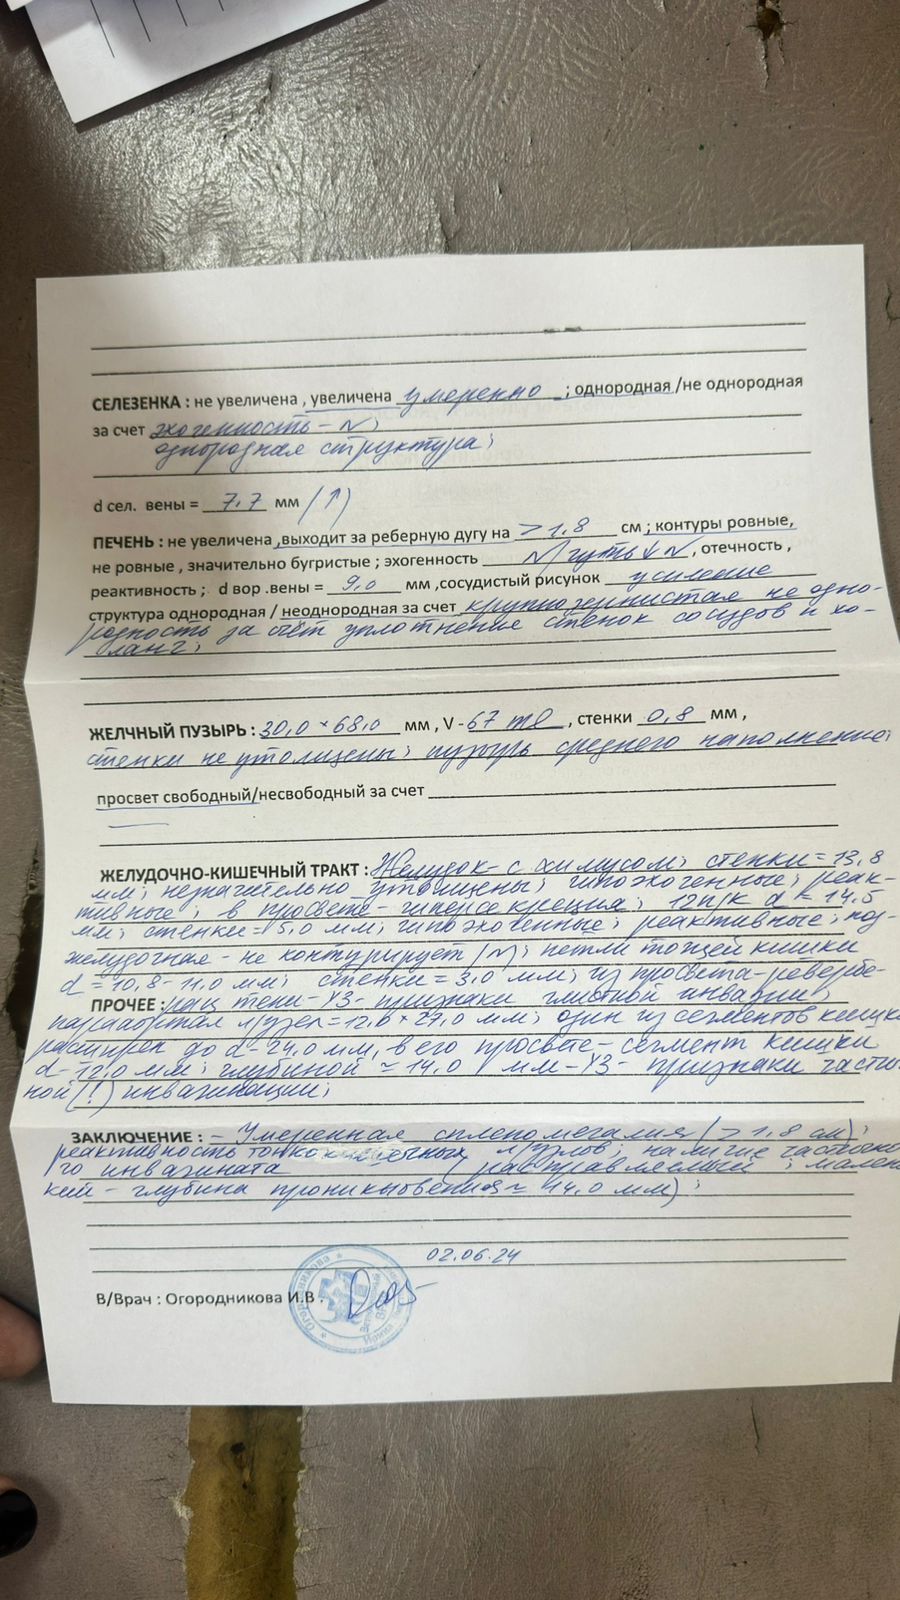 СЕЛЕЗЕНКА : не увеличена , увеличена умеренно ; однородная /не однородная
за счет эхогенность - N;
однородная структура;
d сел. вены = 7,7 мм (↑)
ПЕЧЕНЬ : не увеличена ,выходит за реберную дугу на > 1,8 см ; контуры ровные,
не ровные , значительно бугристые ; эхогенность N/чуть ↓ N , отечность ,
реактивность ; d вор .вены = 9,0 мм ,сосудистый рисунок усиление
структура однородная / неоднородная за счет крупнозернистая не одно-
родность за счёт уплотнение стенок сосудов и хо-
ланг;
ЖЕЛЧНЫЙ ПУЗЫРЬ : 30,0 × 68,0 мм , V - 67 ml , стенки 0,8 мм ,
стенки не утолщены; пузырь среднего наполнения;
просвет свободный/несвободный за счет
ЖЕЛУДОЧНО-КИШЕЧНЫЙ ТРАКТ : Желудок - с химусом; стенки = 13,8
мм; незначительно утолщены; гипоэхогенные; реак-
тивные; в просвете - гиперсекреция; 12п/к d ≈ 14,5
мм; стенки = 5,0 мм; гипоэхогенные; реактивные; под-
желудочная - не контурирует (N); петли тощей кишки
d = 10,8 - 11,0 мм; стенки = 3,0 мм; из просвета - ревербе-
ПРОЧЕЕ : рац тени - УЗ - признаки глистной инвазии;
парааортал л/узел = 12,0 × 27,0 мм; один из сегментов кишки
расширен до d - 24,0 мм, в его просвете - сегмент кишки
d - 12,0 мм; глубиной ≈ 14,0 мм - УЗ - признаки частич
ной (!) инвагинации;
ЗАКЛЮЧЕНИЕ : - Умеренная спленомегалия (> 1,8 см);
реактивность тонкокишечных л/узлов; наличие частично
го инвагината расправляемый ; мален
кий - глубина проникновения ≈ 14,0 мм);
02.06.24
В/Врач : Огородникова И.В .